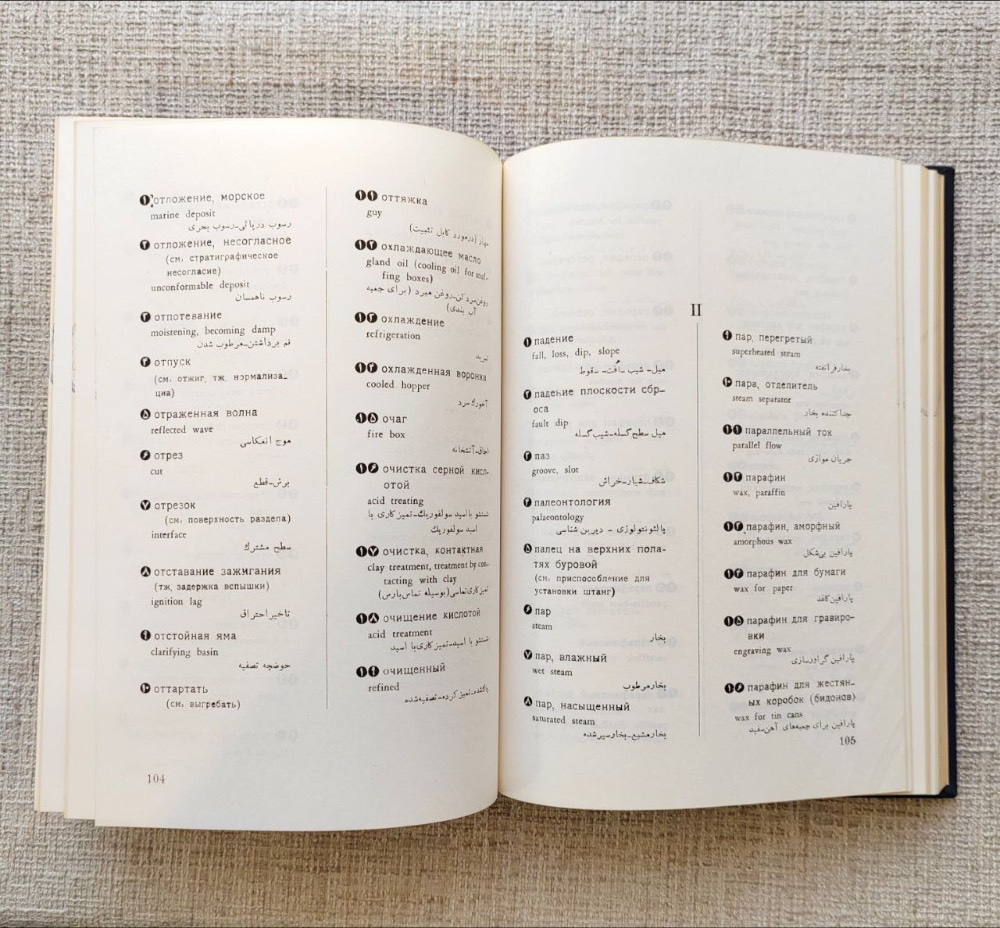 ۱ отложение, морское
marine deposit
رسوب دریائی-رسوب بحری
۲ отложение, несогласное
(см. стратиграфическое
несогласие)
unconformable deposit
رسوب ناهمسان
۳ отпотевание
moistening, becoming damp
نم برداشتن-مرطوب شدن
۴ отпуск
(см. отжиг, тж. нормализа-
циа)
۵ отраженная волна
reflected wave
موج انعکاسی
۶ отрез
cut
برش-قطع
۷ отрезок
(см. поверхность раздела)
interface
سطح مشترك
۸ отставание зажигания
(тж. задержка вспышки)
ignition lag
تاخیر احتراق
۹ отстойная яма
clarifying basin
حوضچه تصفیه
۱۰ оттартать
(см. выгребать)
104
۱۱ оттяжка
guy
مهار (درمورد کابل تثبیت)
۱۲ охлаждающее масло
gland oil (cooling oil for stuf-
fing boxes)
روغن سردکن-روغن مبرد (برای جعبه
آب بندی)
۱۳ охлаждение
refrigeration
تبرید
۱۴ охлажденная воронка
cooled hopper
۱۵ очаг
fire box
اجاق-آتشخانه
۱۶ очистка серной кисл-
отой
acid treating
شستشو با اسید سولفوریك-تمیزکاری با
اسید سولفوریك
۱۷ очистка, контактная
clay treatment, treatment by con-
tacting with clay
تمیزکاری تماسی (بوسیله تماس بارس)
۱۸ очищение кислотой
acid treatment
شستشو با اسید-تمیزکاری با اسید
۱۹ очищенный
refined
پاكشده-تمیزکرده-تصفیه شده
II
۱ падение
fall, loss, dip, slope
میل- شیب -اُفت- سقوط
۲ падение плоскости сбр-
оса
fault dip
میل سطح گسله-شیب گسله
۳ паз
groove, slot
شکاف-شیار-خراش
۴ палеонтология
palaeontology
پالئونتولوژی - دیرین شناسی
۵ палец на верхних пола-
тях буровой
(см. приспособление для
установки штанг)
۶ пар
steam
بخار
۷ пар, влажный
wet steam
بخار مرطوب
۸ пар, насыщенный
saturated steam
بخار مشبع-بخار سیر شده
۹ пар, перегретый
superheated steam
بخار فرا تفته
۱۰ пара, отделитель
steam separator
جدا کننده بخار
۱۱ параллельный ток
parallel flow
جریان موازی
۱۲ парафин
wax, paraffin
پارافین
۱۳ парафин, аморфный
amorphous wax
پارافین بی‌شکل
۱۴ парафин для бумаги
wax for paper
پارافین کاغذ
۱۵ парафин для гравиро-
вки
engraving wax
پارافین گراورسازی
۱۶ парафин для жестян-
ых коробок (бидонов)
wax for tin cans
پارافین برای جعبه‌های آهن‌سفید
105